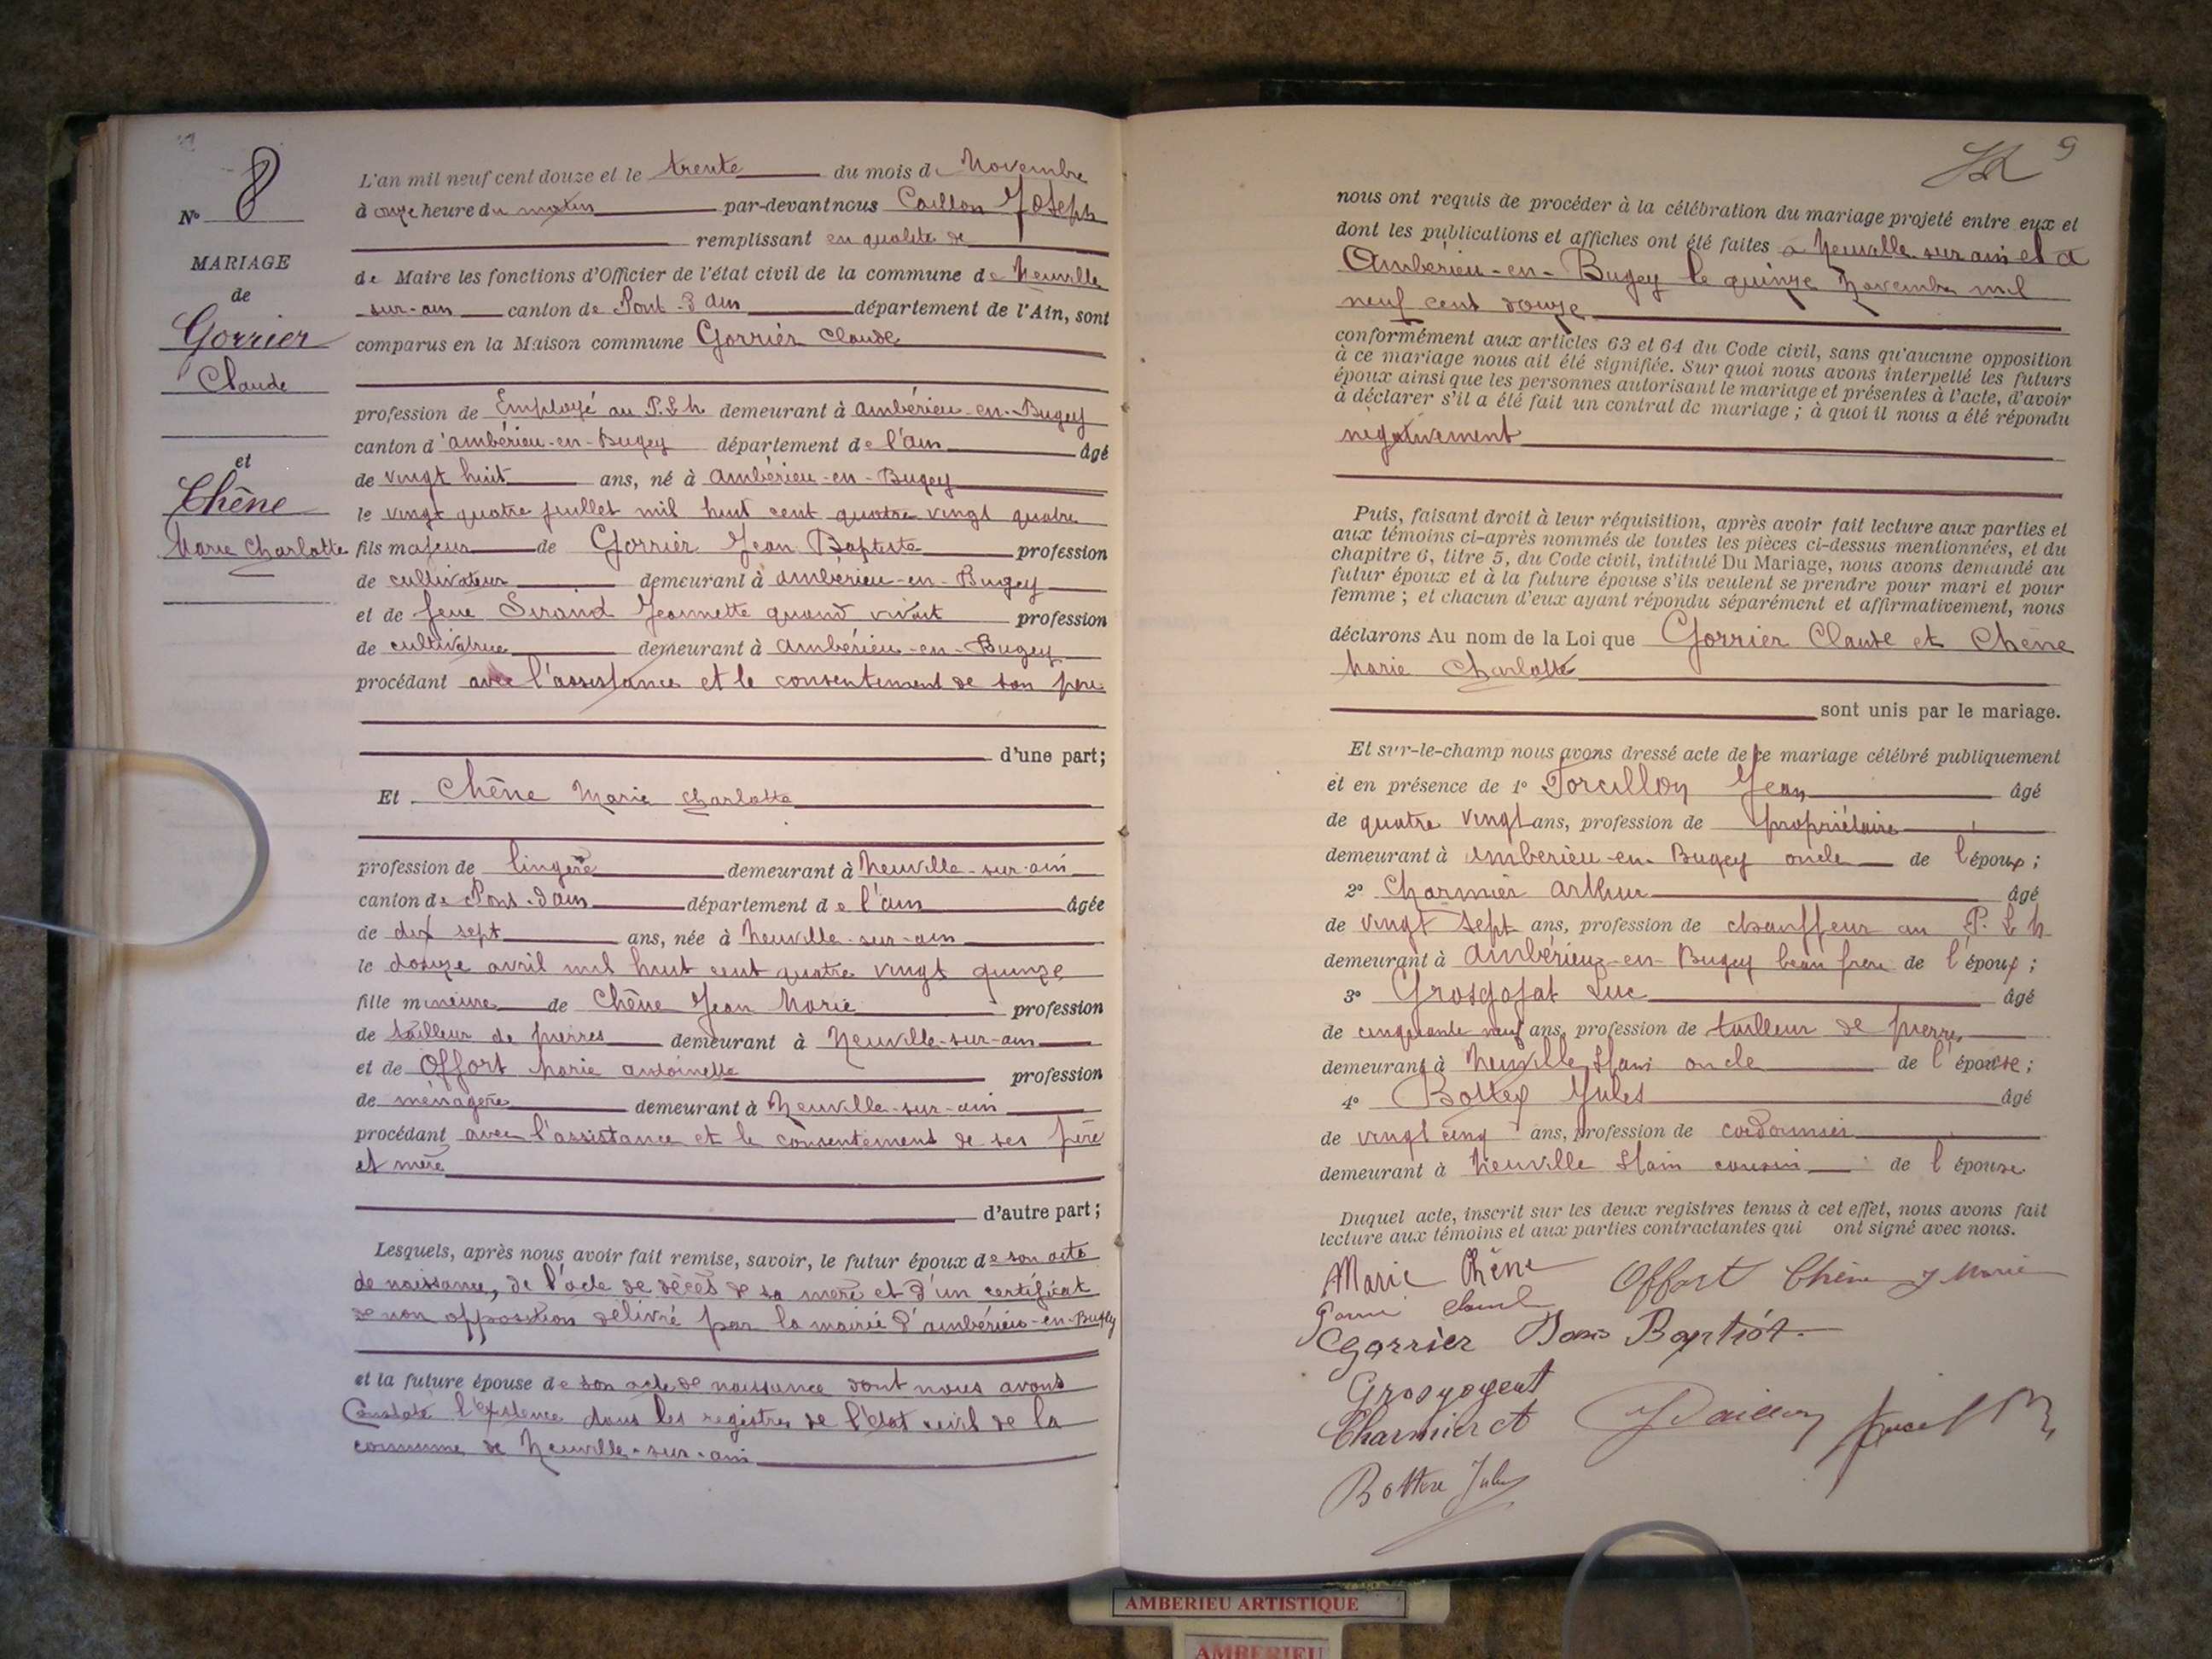 N° 8
MARIAGE
de
Gorrier
Claude
et
Chêne
Marie Charlotte
L'an mil neuf cent douze et le trente du mois de Novembre
à onze heure du matin par-devant nous Caillon Joseph
remplissant en qualité de
de Maire les fonctions d'Officier de l'état civil de la commune de Neuville
sur-ain canton de Pont d'ain département de l'Ain, sont
comparus en la Maison commune Gorrier Claude
profession de Employé au P.L.M demeurant à ambérieu-en-Bugey
canton d'ambérieu-en-Bugey département de l'ain âgé
de vingt huit ans, né à ambérieu-en-Bugey
le vingt quatre juillet mil huit cent quatre vingt quatre
fils majeur de Gorrier Jean Baptiste profession
de cultivateur demeurant à ambérieu-en-Bugey
et de feue Siraud Jeannette quand vivait profession
de cultivatrice demeurant à ambérieu-en-Bugey
procédant avec l'assistance et le consentement de son père
d'une part;
Et Chêne Marie Charlotte
profession de lingère demeurant à Neuville-sur-ain
canton de Pont-d'ain département de l'ain âgée
de dix sept ans, née à Neuville-sur-ain
le douze avril mil huit cent quatre vingt quinze
fille mineure de Chêne Jean Marie profession
de tailleur de pierres demeurant à Neuville-sur-ain
et de Offort Marie antoinette profession
de ménagère demeurant à Neuville-sur-ain
procédant avec l'assistance et le consentement de ses père
et mère
d'autre part;
Lesquels, après nous avoir fait remise, savoir, le futur époux de son acte
de naissance, de l'acte de décès de sa mère et d'un certificat
de non opposition délivré par la mairie d'ambérieu-en-Bugey
et la future épouse de son acte de naissance dont nous avons
Constaté l'existence dans les registres de l'état civil de la
commune de Neuville-sur-ain
9
nous ont requis de procéder à la célébration du mariage projeté entre eux et
dont les publications et affiches ont été faites à Neuville sur ain et à
Ambérieu-en-Bugey le quinze Novembre mil
neuf cent douze
conformément aux articles 63 et 64 du Code civil, sans qu'aucune opposition
à ce mariage nous ait été signifiée. Sur quoi nous avons interpellé les futurs
époux ainsi que les personnes autorisant le mariage et présentes à l'acte, d'avoir
à déclarer s'il a été fait un contrat de mariage ; à quoi il nous a été répondu
négativement
Puis, faisant droit à leur réquisition, après avoir fait lecture aux parties et
aux témoins ci-après nommés de toutes les pièces ci-dessus mentionnées, et du
chapitre 6, titre 5, du Code civil, intitulé Du Mariage, nous avons demandé au
futur époux et à la future épouse s'ils veulent se prendre pour mari et pour
femme ; et chacun d'eux ayant répondu séparément et affirmativement, nous
déclarons Au nom de la Loi que Gorrier Claude et Chêne
Marie Charlotte
sont unis par le mariage.
Et sur-le-champ nous avons dressé acte de ce mariage célébré publiquement
et en présence de 1° Torcillon Jean âgé
de quatre vingt ans, profession de propriétaire
demeurant à ambérieu-en-Bugey oncle de l'époux ;
2° Charmier arthur âgé
de vingt sept ans, profession de chauffeur au P.L.M
demeurant à Ambérieux-en-Bugey beau frère de l'époux ;
3° Grosgojat Luc âgé
de cinquante neuf ans, profession de tailleur de pierres
demeurant à Neuville s/ain oncle de l'épouse ;
4° Bottex Jules âgé
de vingt cinq ans, profession de cordonnier
demeurant à Neuville s/ain cousin de l'épouse
Duquel acte, inscrit sur les deux registres tenus à cet effet, nous avons fait
lecture aux témoins et aux parties contractantes qui ont signé avec nous.
Marie Chêne Offort Chêne J Marie
Gorrier
Charmier A
Jules
AMBERIEU ARTISTIQUE
AMBERIEU